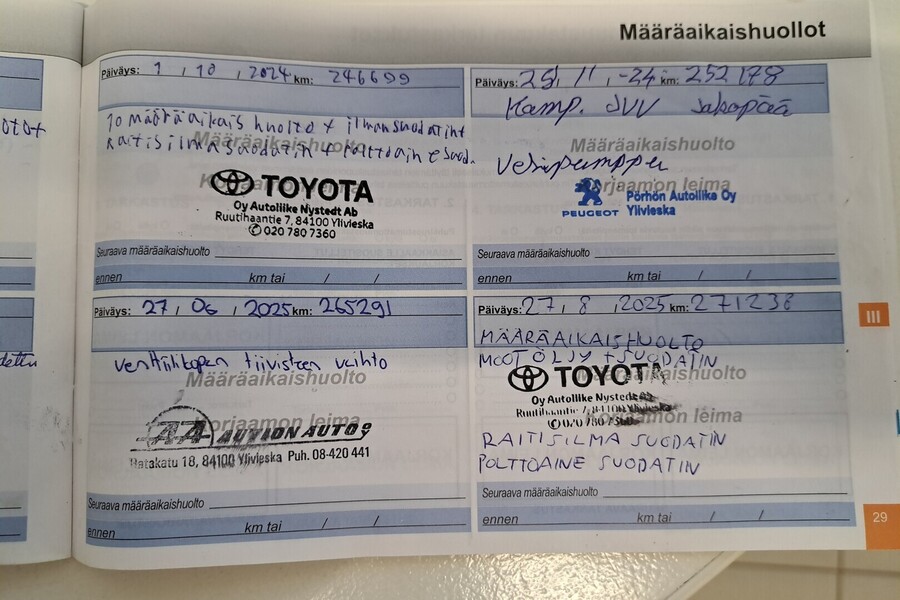 Määräaikaishuollot
Päiväys: 1 , 10 , 2024 km: 246699
10 määräaikais huolto + ilmansuodatint
Raitisilmasuodatin + polttoaine suod.
Määräaikaishuolto
Korjaamon leima
TOYOTA
Oy Autoliike Nystedt Ab
Ruutihaantie 7, 84100 Ylivieska
020 780 7360
Seuraava määräaikaishuolto
ennen km tai / /
Päiväys: 25 , 11 , -24 km: 252178
Hamp. SVV Jakopää
Määräaikaishuolto
Vesipumppu
Korjaamon leima
PEUGEOT
Pörhön Autoliike Oy
Ylivieska
Seuraava määräaikaishuolto
ennen km tai / /
Päiväys: 27 , 06 , 2025 km: 265291
venttiilikopan tiivisteen vaihto
Määräaikaishuolto
Korjaamon leima
AA AUTION AUTO
Ratakatu 18, 84100 Ylivieska Puh. 08-420 441
Seuraava määräaikaishuolto
ennen km tai / /
Päiväys: 27 , 8 , 2025 km: 271238
MÄÄRÄAIKAISHUOLTO
MOOT ÖLJY + SUODATIN
Määräaikaishuolto
TOYOTA
Oy Autoliike Nystedt Ab
Ruutihaantie 7, 84100 Ylivieska
020 780 7360
Korjaamon leima
RAITISILMA SUODATIN
POLTTOAINE SUODATIN
Seuraava määräaikaishuolto
ennen km tai / /
III
29